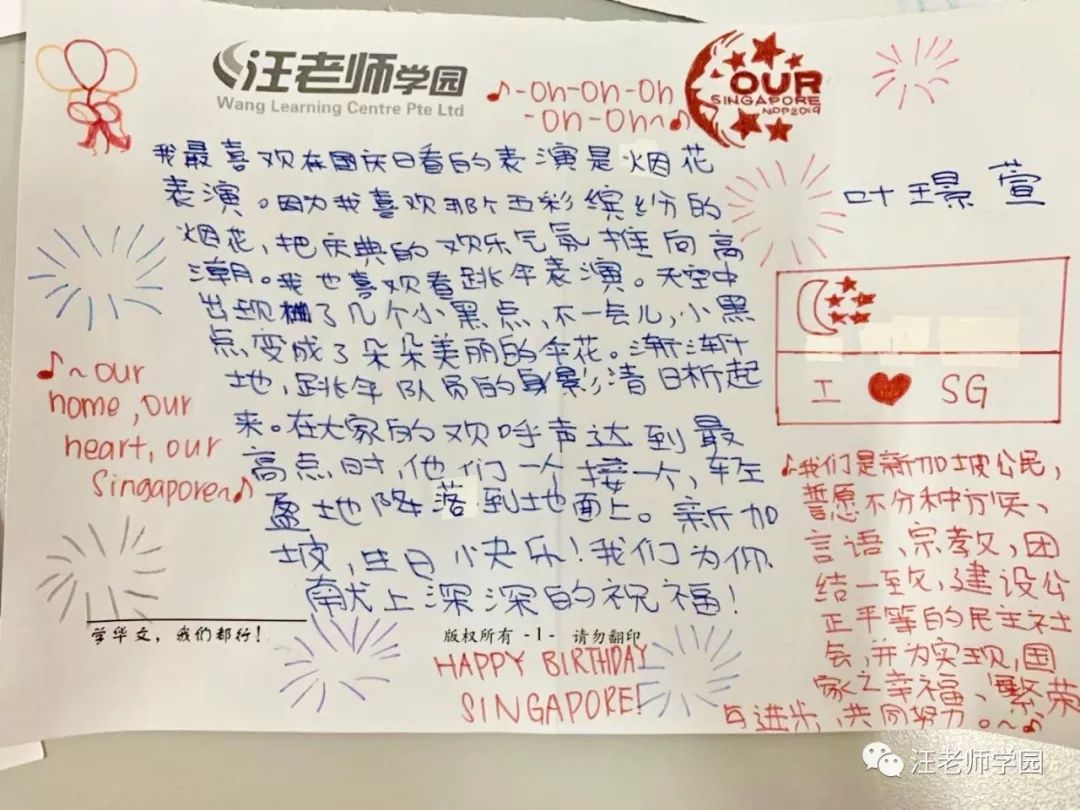 汪老师学园
Wang Learning Centre Pte Ltd
♪-Oh-Oh-Oh
-Oh-Oh~♪
OUR
SINGAPORE
NDP2019
我最喜欢在国庆日看的表演是烟花
表演。因为我喜欢那个五彩缤纷的
烟花，把庆典的欢乐气氛推向高
潮。我也喜欢看跳伞表演。天空中
出现了几个小黑点，不一会儿，小黑
点变成了朵朵美丽的伞花。渐渐
地，跳伞队员的身影清晰起
来。在大家的欢呼声达到最
高点时，他们一个接一个，轻
盈地降落到地面上。新加
坡，生日快乐！我们为你
献上深深的祝福！
叶璟萱
I ♥ SG
♪~our
home, our
heart, our
Singapore~♪
♪我们是新加坡公民，
誓愿不分种族、
言语、宗教，团
结一致，建设公
正平等的民主社
会，并为实现国
家之幸福、繁荣
与进步，共同努力。~♪
学华文，我们都行！
版权所有 -1- 请勿翻印
HAPPY BIRTHDAY
SINGAPORE!
汪老师学园